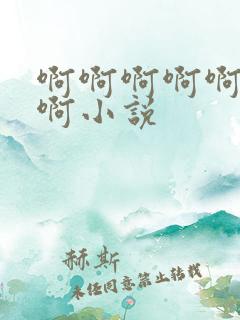 啊啊啊啊啊
啊小说
赫斯
未经同意禁止转载